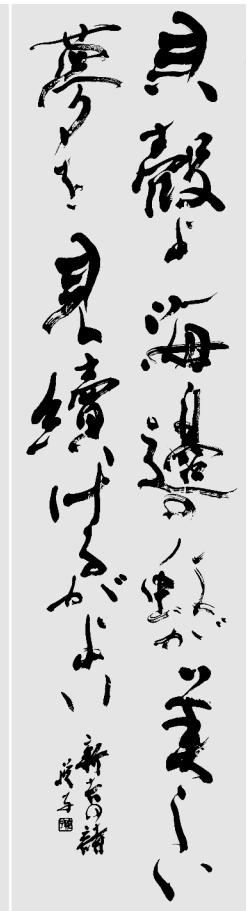 貝殻よ海邊のが美しい
夢を見續けるがよい
新吉の詩